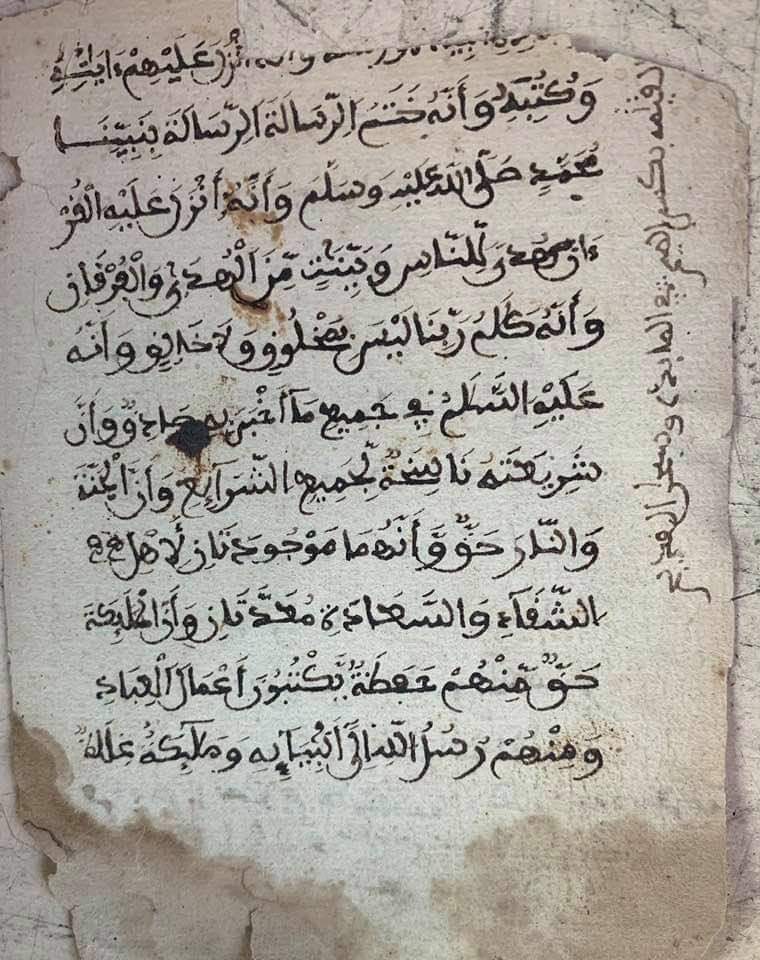 أنزل عليهم ءايت في
وكتبه وأنّه ختم الرّسالة الرّسالة بنبيّنا
محمّد صلّى الله عليه وسلّم وأنّه أنزل عليه الفر
ءان هدى لّلنّاس وبيّنت مّن الهدى والفرفان
وأنّه كلم ربّنا ليس بمخلوق ولا خالق وأنّه
عليه السّلم في جميع ما أخبر به جاء وأنّ
شريعته ناسخة لّجميع الشّرآئع وأنّ الجنّة
والنّار حقّ وأنّهما موجودتان لأهل
الشّقاء والسّعادة معدّتان وأنّ الملئكة
حقّ مّنهم حفظة يّكتبون أعمال العباد
ومنهم رسل الله الى أنبيايه وملئكة غلاظ